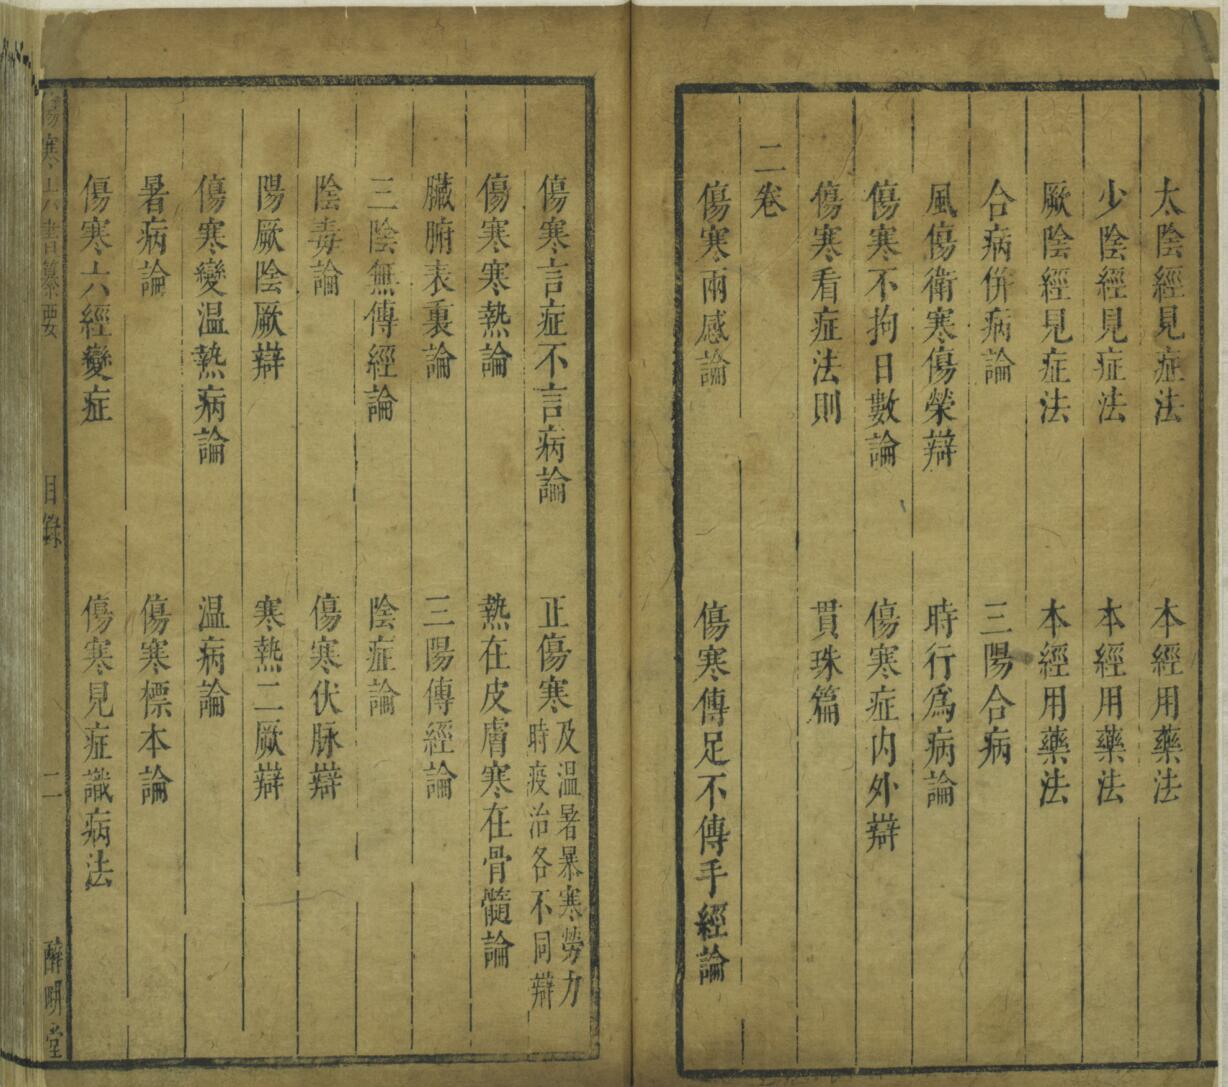 太陰經見症法　本經用藥法
少陰經見症法　本經用藥法
厥陰經見症法　本經用藥法
合病併病論　三陽合病
風傷衛寒傷榮辯　時行爲病論
傷寒不拘日數論　傷寒症内外辯
傷寒看症法則　貫珠篇
二卷
傷寒兩感論　傷寒傳足不傳手經論
傷寒言症不言病論　正傷寒及温暑暴寒勞力時疫治各不同辯
傷寒寒熱論　熱在皮膚寒在骨髓論
臟腑表裏論　三陽傳經論
三陰無傳經論　陰症論
陰毒論　傷寒伏脉辯
陽厥陰厥辯　寒熱二厥辯
傷寒變温熱病論　温病論
暑病論　傷寒標本論
傷寒六經變症　傷寒見症識病法
傷寒六書纂要　目錄　二　醉畊堂